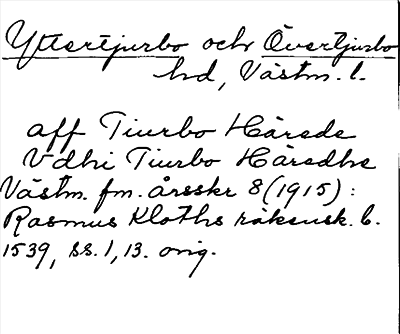 Yttertjurbo och Övertjurbo
hd, Västm. l.
aff Tiurbo Härede
Vdhi Tiurbo Häredhe
Västm. fm. årsskr 8 (1915):
Rasmus Kloths räkensk. b.
1539, ss. 1, 13. orig.